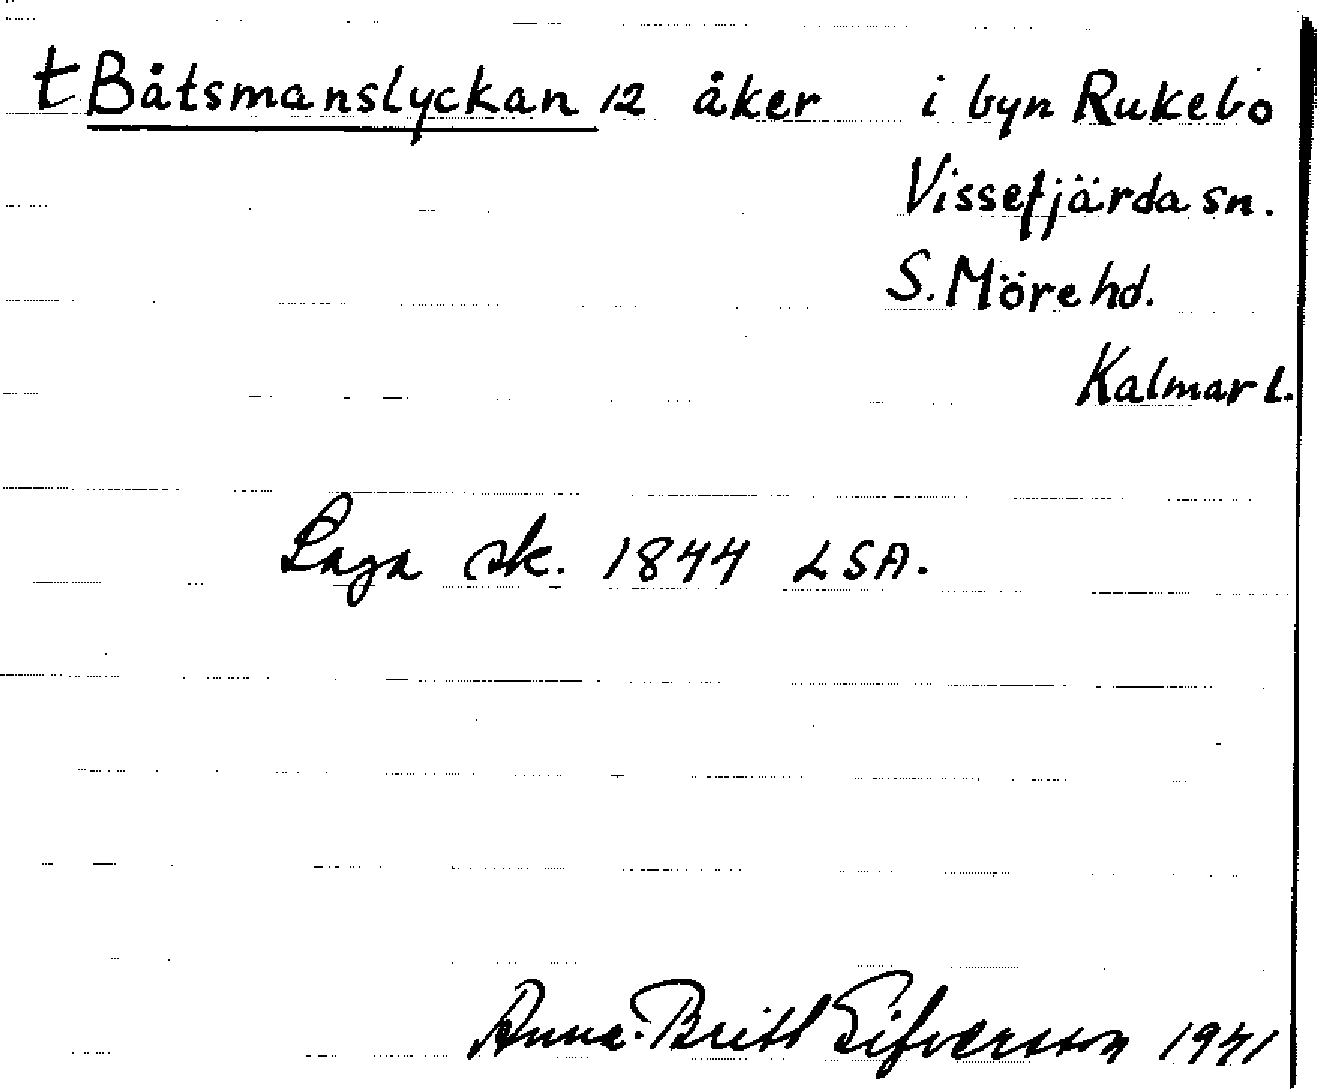 t Båtsmanslyckan 12 åker i byn Rukebo
Vissefjärda sn.
S. Möre hd.
Kalmar l.
Laga sk. 1844 LSA.
Anna-Britt Sifversson 1941